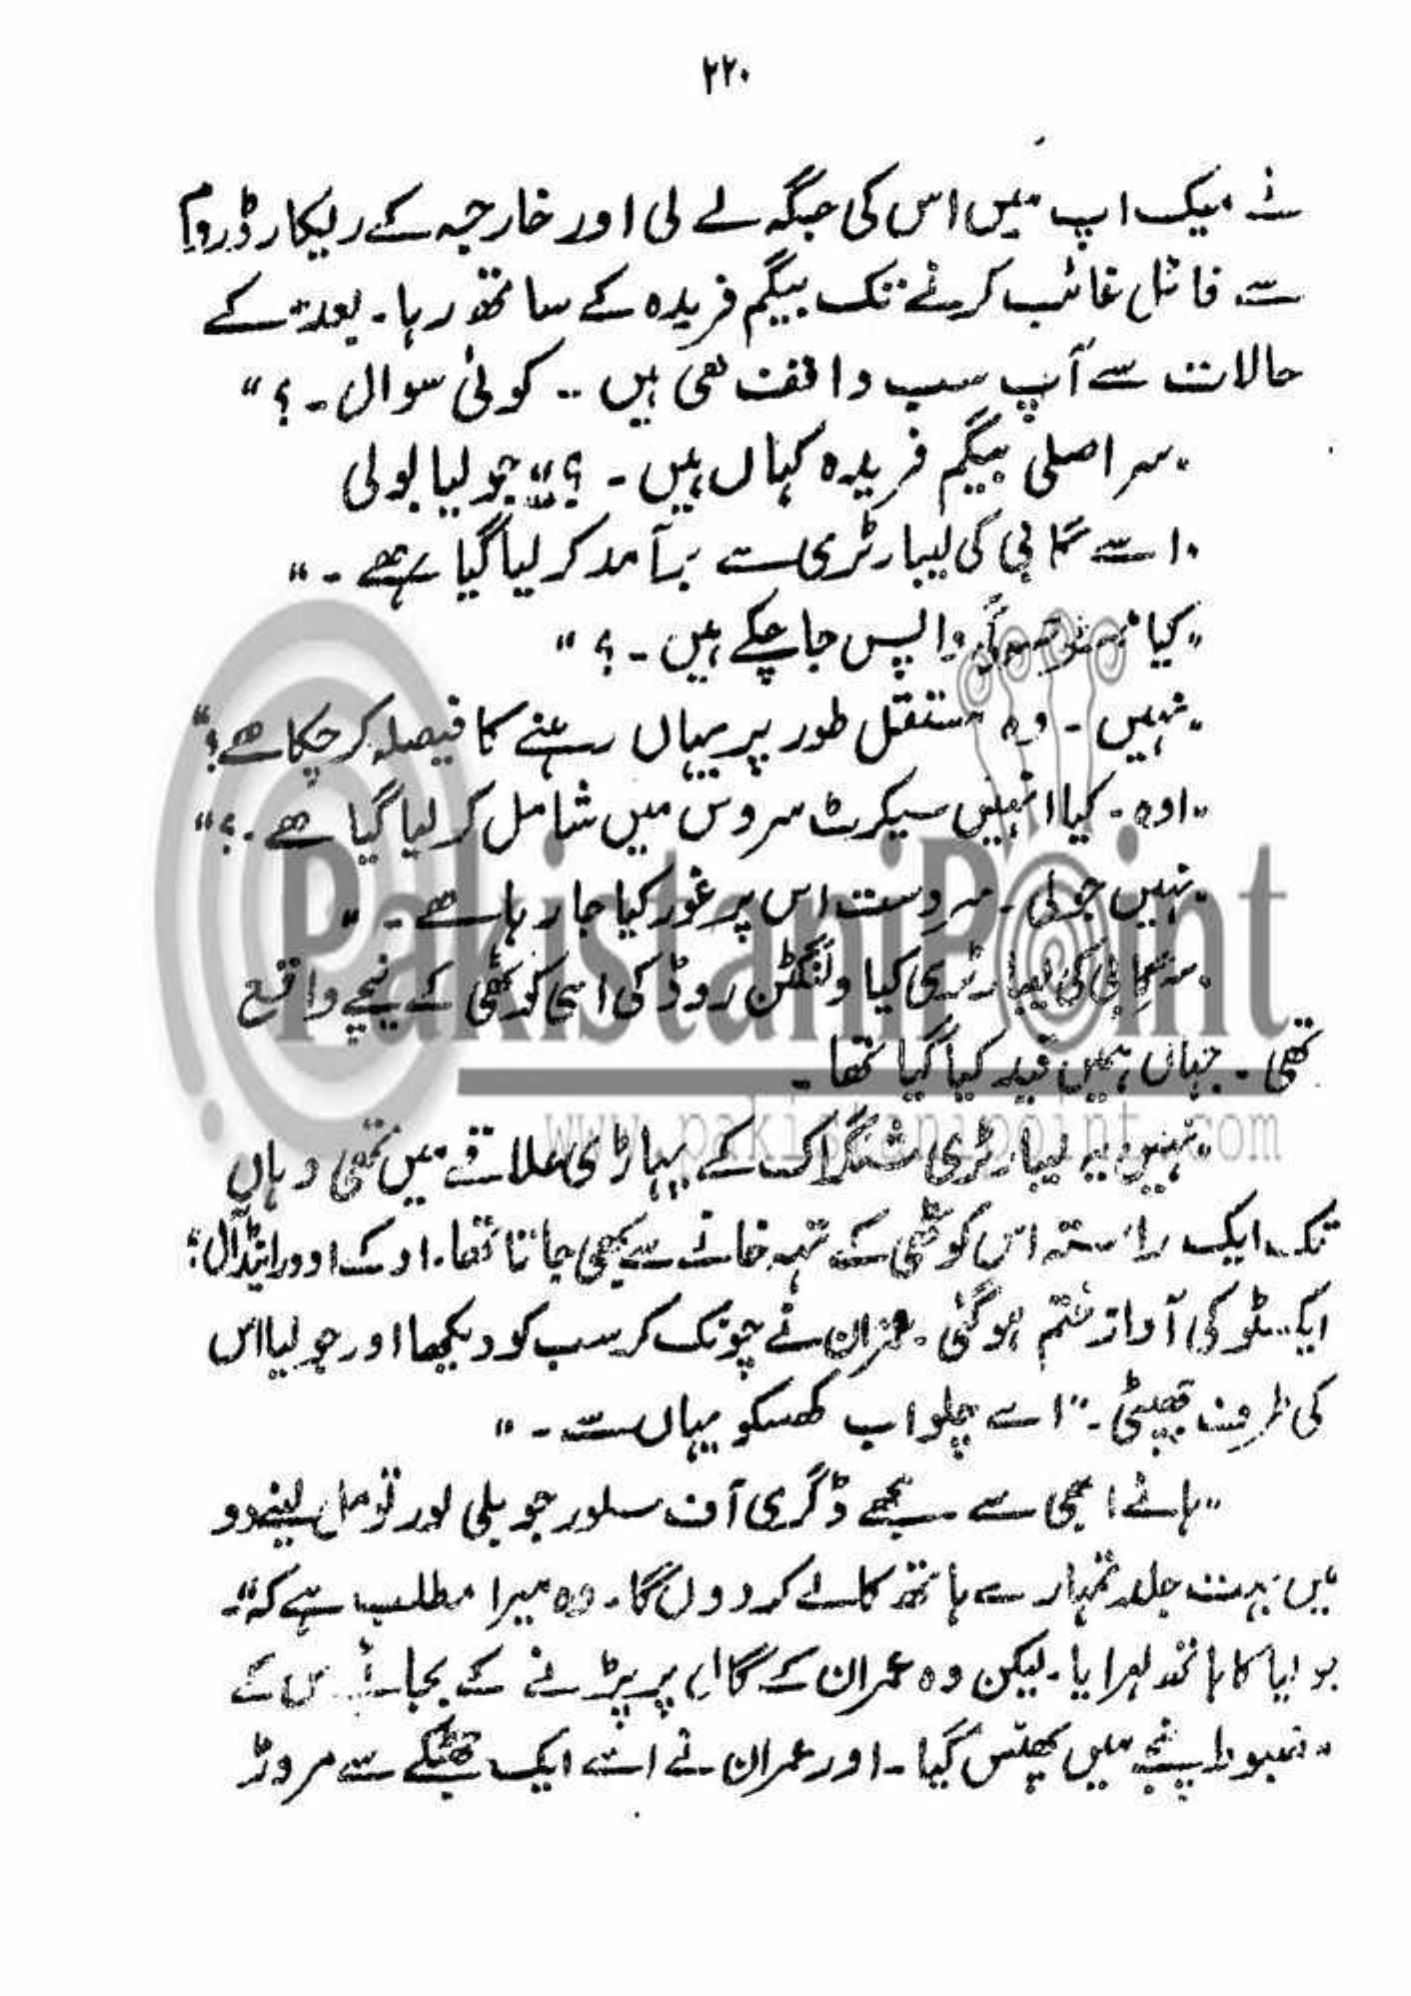 ۲۲۰
نے میک اپ میں اس کی جگہ لے لی اور خارجہ کے ریکارڈ روم
سے فائل غائب کرنے تک بیگم فریدہ کے ساتھ رہا۔ بعد کے
حالات سے آپ سب واقف ہی ہیں ۔۔ کوئی سوال ۔ ؟"
"سر اصلی بیگم فریدہ کہاں ہیں ۔ ؟" جولیا بولی
"اسے گاپی کی لیبارٹری سے برآمد کر لیا گیا ہے ۔"
"کیا واپس جا چکے ہیں ۔ ؟"
"نہیں ۔ وہ مستقل طور پر یہاں رہنے کا فیصلہ کر چکا ہے ؟"
"اوہ ۔ کیا انہیں سیکرٹ سروس میں شامل کر لیا گیا ہے ۔ ؟"
"نہیں جولی ۔ سردست اس پر غور کیا جا رہا ہے ۔"
"سر گاپی کی لیبارٹری کیا ولنگٹن روڈ کی اسی کوٹھی کے نیچے واقع
تھی ۔ جہاں ہمیں قید کیا گیا تھا ۔
"نہیں یہ لیبارٹری شنگراک کے پہاڑی علاقے میں تھی وہاں
تک ایک راستہ اس کوٹھی کے تہہ خانے سے بھی جاتا تھا۔ اوکے اوور اینڈ آل ؛
ایکسٹو کی آواز ختم ہو گئی ۔ عمران نے چونک کر سب کو دیکھا اور جولیا اس
کی طرف جھپٹی ۔ "اسے چلو اب کھسکو یہاں سے ۔"
"ہائے ابھی سے مجھے ڈگری آف سلور جوبلی اور تو مل لینے دو
میں بہت جلد تمہارے ہاتھ کالے کر دوں گا۔ وہ میرا مطلب ہے کہ"۔
جولیا کا ہاتھ لہرایا۔ لیکن وہ عمران کے گال پر پڑنے کے بجائے اس کے
مضبوط پنجے میں پھنس گیا۔ اور عمران نے اسے ایک جھٹکے سے مروڑ
PakistaniPoint
www.pakistanipoint.com